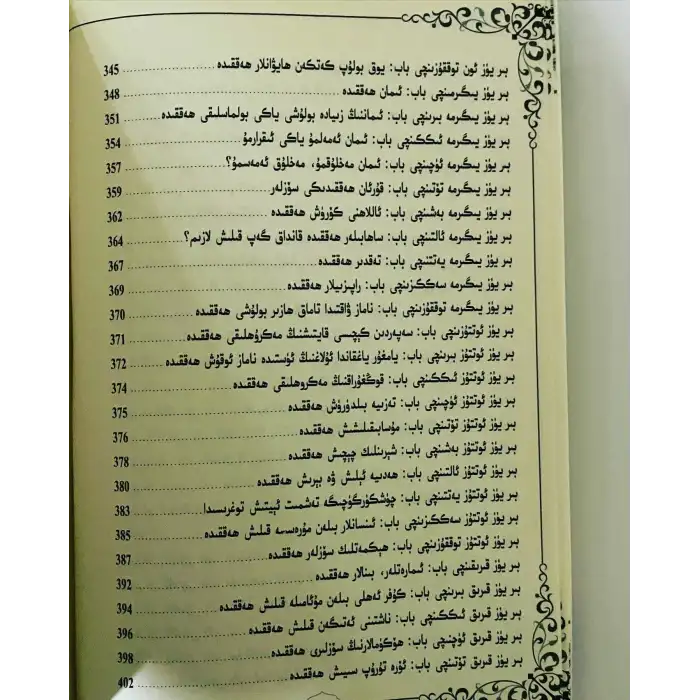 بىر يۈز ئون توققۇزىنچى باب: يوق بولۇپ كەتكەن ھايۋانلار ھەققىدە ........ 345
بىر يۈز يىگىرمىنچى باب: ئىمان ھەققىدە ........ 348
بىر يۈز يىگىرمە بىرىنچى باب: ئىماننىڭ زىيادە بولۇشى ياكى بولماسلىقى ھەققىدە ........ 351
بىر يۈز يىگىرمە ئىككىنچى باب: ئىمان ئەمەلمۇ ياكى ئىقرارمۇ ........ 354
بىر يۈز يىگىرمە ئۈچىنچى باب: ئىمان مەخلۇقمۇ، مەخلۇق ئەمەسمۇ؟ ........ 357
بىر يۈز يىگىرمە تۆتىنچى باب: قۇرئان ھەققىدىكى سۆزلەر ........ 359
بىر يۈز يىگىرمە بەشىنچى باب: ئاللاھنى كۆرۈش ھەققىدە ........ 362
بىر يۈز يىگىرمە ئالتىنچى باب: ساھابىلەر ھەققىدە قانداق گەپ قىلىش لازىم؟ ........ 364
بىر يۈز يىگىرمە يەتتىنچى باب: تەقدىر ھەققىدە ........ 367
بىر يۈز يىگىرمە سەككىزىنچى باب: راپىزىيلار ھەققىدە ........ 369
بىر يۈز يىگىرمە توققۇزىنچى باب: ناماز ۋاقتىدا تاماق ھازىر بولۇشى ھەققىدە ........ 370
بىر يۈز ئوتتۇزىنچى باب: سەپەردىن كېچىسى قايتىشنىڭ مەكرۇھلىقى ھەققىدە ........ 371
بىر يۈز ئوتتۇز بىرىنچى باب: يامغۇر ياغقاندا ئۇلاغنىڭ ئۈستىدە ناماز ئوقۇش ھەققىدە ........ 372
بىر يۈز ئوتتۇز ئىككىنچى باب: قوڭغۇراقنىڭ مەكروھلىقى ھەققىدە ........ 374
بىر يۈز ئوتتۇز ئۈچىنچى باب: تەزىيە بىلدۈرۈش ھەققىدە ........ 375
بىر يۈز ئوتتۇز تۆتىنچى باب: مۇسابىقىلىشىش ھەققىدە ........ 376
بىر يۈز ئوتتۇز بەشىنچى باب: شېرىنلىك چېچىش ھەققىدە ........ 378
بىر يۈز ئوتتۇز ئالتىنچى باب: ھەدىيە ئېلىش ۋە بېرىش ھەققىدە ........ 380
بىر يۈز ئوتتۇز يەتتىنچى باب: چۈشكۈرگۈچىگە تەشمىت ئېيتىش توغرىسىدا ........ 383
بىر يۈز ئوتتۇز سەككىزىنچى باب: ئىنسانلار بىلەن مۇرەسسە قىلىش ھەققىدە ........ 385
بىر يۈز ئوتتۇز توققۇزىنچى باب: ھېكمەتلىك سۆزلەر ھەققىدە ........ 387
بىر يۈز قىرىقىنچى باب: ئىمارەتلەر، بىنالار ھەققىدە ........ 392
بىر يۈز قىرىق بىرىنچى باب: كۇفر ئەھلى بىلەن مۇئامىلە قىلىش ھەققىدە ........ 394
بىر يۈز قىرىق ئىككىنچى باب: ناشتىنى ئەتىگەن قىلىش ھەققىدە ........ 396
بىر يۈز قىرىق ئۈچىنچى باب: ھۆكۈمالارنىڭ سۆزلىرى ھەققىدە ........ 398
بىر يۈز قىرىق تۆتىنچى باب: ئۆرە تۇرۇپ سىيىش ھەققىدە ........ 402